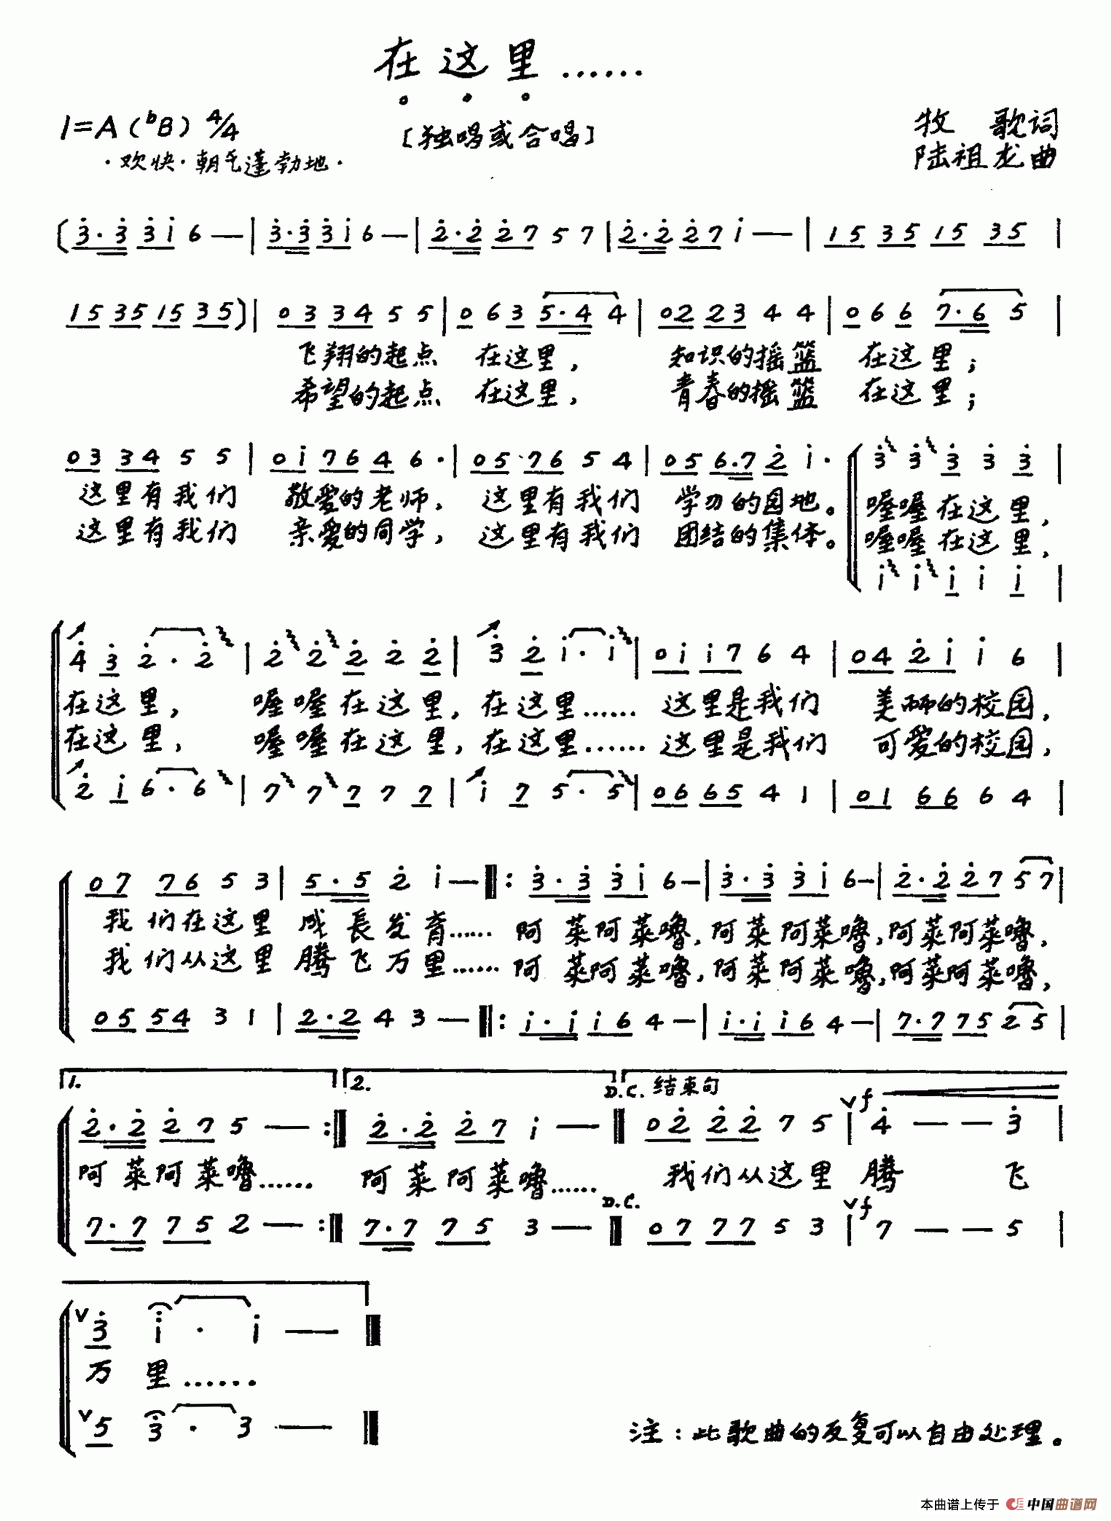 在这里……
1=A（ᵇB）4/4
［独唱或合唱］
牧 歌词
·欢快·朝气蓬勃地·
陆祖龙曲
(3·3 3i 6 — | 3·3 3i 6 — | 2·2 27 5 7 | 2·2 27 i — | 15 35 15 35 |
15 35 15 35) | 03 34 5 5 | 0 6 3 5·4 4 | 02 23 4 4 | 0 6 6 7·6 5 |
飞翔的起点 在这里， 知识的摇篮 在这里；
希望的起点 在这里， 青春的摇篮 在这里；
03 34 5 5 | 0i 76 4 6· | 05·76 5 4 | 05 6·7 2 i· | 3 3 3 3 3 |
这里有我们 敬爱的老师， 这里有我们 学习的园地。 喔喔在这里，
这里有我们 亲爱的同学， 这里有我们 团结的集体。 喔喔在这里，
i i i i i |
4 3 2·2 | 2 2 2 2 2 | 3 2 i·i | 0i i7 6 4 | 04 2i i 6 |
在这里， 喔喔在这里，在这里…… 这里是我们 美丽的校园，
在这里， 喔喔在这里，在这里…… 这里是我们 可爱的校园，
2 i 6·6 | 7 7 7 7 7 | i 7 5·5 | 06 65 4 1 | 01 66 6 4 |
07 76 5 3 | 5·5 2 i — :3·3 3i 6 — | 3·3 3i 6 — | 2·2 27 5 7 |
我们在这里 成長发育…… 阿莱阿莱噜，阿莱阿莱噜，阿莱阿莱噜，
我们从这里 腾飞万里…… 阿莱阿莱噜，阿莱阿莱噜，阿莱阿莱噜，
05 54 3 1 | 2·2 4 3 — :i·i i6 4 — | i·i i6 4 — | 7·7 75 2 5 |
1. 2. D.C. 结束句
2·2 27 5 — : 2·2 27 i — 02 22 7 5 | ∨f 4 — — 3 |
阿莱阿莱噜…… 阿莱阿莱噜…… 我们从这里 腾 飞
D.C. ∨f
7·7 75 2 — : 7·7 75 3 — 07 77 5 3 | 7 — — 5 |
∨3 i · i —
万 里……
∨5 3 · 3 —
注：此歌曲的反复可以自由处理。
本曲谱上传于 中国曲谱网